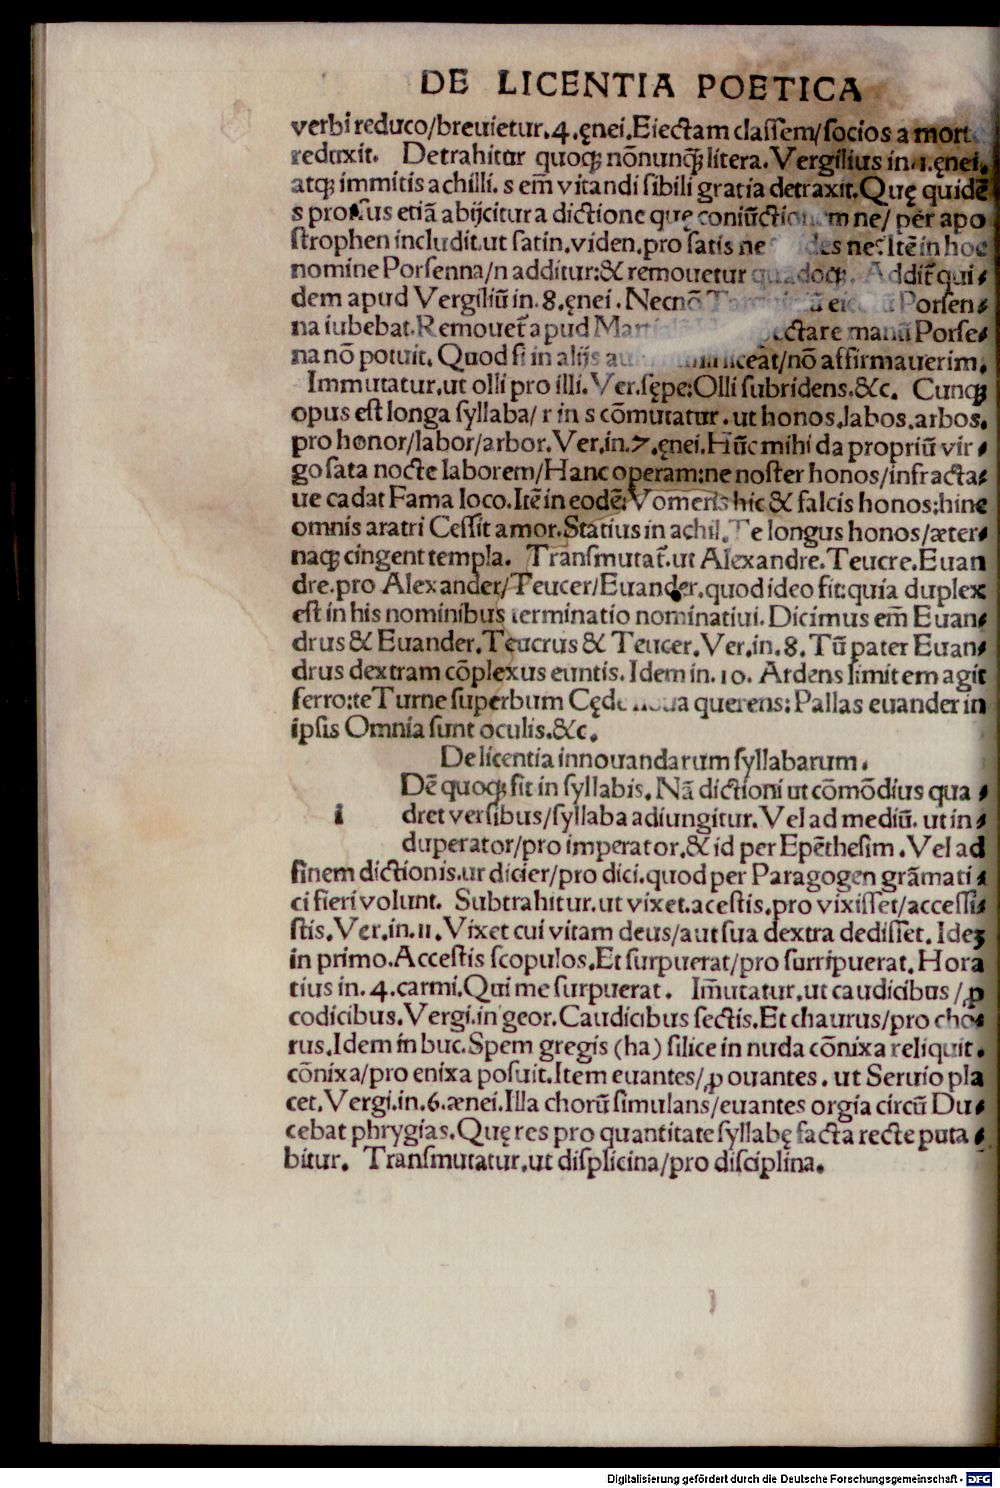 DE LICENTIA POETICA
verbi reduco/breuietur.4.ęnei.Eiectam classem/socios a mort
reduxit. Detrahitur quoqꝫ nōnunqꝫ litera. Vergilius in.1.ęnei.
atqꝫ immitis achilli. s em̄ vitandi sibili gratia detraxit. Quę quidē
s prorsus etiā abijcitur a dictione quę coniūctionem ne/ per apo
strophen includit.ut satin.viden.pro satis ne ne. Itē in hoc
nomine Porsenna/n additur:& remouetur Addit̄ qui⸗
dem apud Vergiliū in.8.ęnei. Necnō Porsen⸗
na iubebat. Remouet̄ apud spectare manū Porse⸗
na nō potuit. Quod si in alijs liceat/nō affirmauerim.
Immutatur.ut olli pro illi. Ver.sępe:Olli subridens.&c. Cunqꝫ
opus est longa syllaba/ r in s cōmutatur. ut honos.labos.arbos.
pro honor/labor/arbor. Ver.in.7.ęnei.Hūc mihi da propriū vir⸗
go sata nocte laborem/Hanc operam:ne noster honos/infracta⸗
ue cadat Fama loco. Itē in eodē: Vomeris hic & falcis honos:hinc
omnis aratri Cessit amor. Statius in achil. Te longus honos/æter⸗
naqꝫ cingent templa. Transmutat̄.ut Alexandre. Teucre. Euan
dre.pro Alexander/Teucer/Euander.quod ideo fit:quia duplex
est in his nominibus terminatio nominatiui. Dicimus em̄ Euan⸗
drus & Euander. Teucrus & Teucer. Ver.in.8. Tū pater Euan⸗
drus dextram cōplexus euntis. Idem in.10. Ardens limitem agit
ferro:te Turne superbum Cęde noua querens: Pallas euander in
ipsis Omnia sunt oculis.&c.
De licentia innouandarum syllabarum.
Dē quoqꝫ fit in syllabis. Nā dictioni ut cōmōdius qua⸗
i dret versibus/syllaba adiungitur. Vel ad mediū. ut in⸗
duperator/pro imperator.& id per Epēthesim. Vel ad
finem dictionis.ut dicier/pro dici.quod per Paragogen grāmati⸗
ci fieri volunt. Subtrahitur.ut vixet.acestis.pro vixisset/accessi⸗
stis. Ver.in.11. Vixet cui vitam deus/aut sua dextra dedisset. Ideꝫ
in primo. Accestis scopulos. Et surpuerat/pro surripuerat. Hora
tius in.4.carmi.Qui me surpuerat. Im̄utatur.ut caudicibus/ꝓ
codicibus. Vergi.in geor. Caudicibus sectis. Et chaurus/pro cho⸗
rus. Idem in buc. Spem gregis (ha) silice in nuda cōnixa reliquit.
cōnixa/pro enixa posuit. Item euantes/ꝓ ouantes. ut Seruio pla
cet. Vergi.in.6.ænei. Illa chorū simulans/euantes orgia circū Du⸗
cebat phrygias. Quę res pro quantitate syllabę facta recte puta⸗
bitur. Transmutatur.ut displicina/pro disciplina.
Digitalisierung gefördert durch die Deutsche Forschungsgemeinschaft - DFG